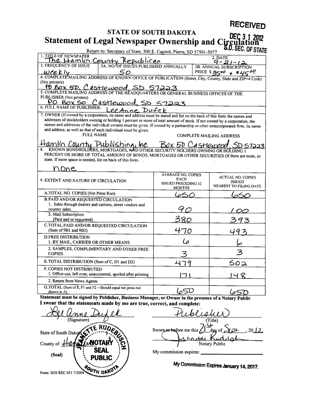 RECEIVED
DEC 31 2012
S.D. SEC. OF STATE
STATE OF SOUTH DAKOTA
Statement of Legal Newspaper Ownership and Circulation
Return to: Secretary of State, 500 E. Capitol, Pierre, SD 57501-5077
1. TITLE OF NEWSPAPER
The Hamlin County Republican
2. DATE
9-21-12
3. FREQUENCY OF ISSUE
weekly
3A. NO. OF ISSUES PUBLISHED ANNUALLY
50
3B. ANNUAL SUBSCRIPTION PRICE
4. COMPLETE MAILING ADDRESS OF KNOWN OFFICE OF PUBLICATION (Street, City, County, State and ZIP+4 Code)
(Not printers)
PO Box 50, Castlewood, SD 57223
5. COMPLETE MAILING ADDRESS OF THE HEADQUARTERS OR GENERAL BUSINESS OFFICES OF THE
PUBLISHER (Not printer)
PO Box 50 Castlewood SD 57223
6. FULL NAME OF PUBLISHER
LeeAnne Dufek
7. OWNER (If owned by a corporation, its name and address must be stated and list on the back of this form the names and
addresses of stockholders owning or holding 1 percent or more of total amount of stock. If not owned by a corporation, the
names and addresses of the individual owners must be given. If owned by a partnership or other unincorporated firm, its name
and address, as well as that of each individual must be given.
FULL NAME COMPLETE MAILING ADDRESS
Hamlin County Publishing, Inc Box 50 Castlewood, SD 57223
8. KNOWN BONDHOLDERS, MORTGAGES, AND OTHER SECURITY HOLDERS OWNING OR HOLDING 1
PERCENT OR MORE OF TOTAL AMOUNT OF BONDS, MORTGAGES OR OTHER SECURITIES (If there are none, so
state. If more space is needed, list on back of this form.
none
9. EXTENT AND NATURE OF CIRCULATION
AVERAGE NO. COPIES EACH ISSUED PRECEDING 12 MONTHS
ACTUAL NO. COPIES ISSUED NEAREST TO FILING DATE
A. TOTAL NO. COPIES (Net Press Run) 650 650
B. PAID AND/OR REQUESTED CIRCULATION
1. Sales through dealers and carriers, street vendors and
counter sales 90 100
2. Mail Subscription
(Paid and or requested) 380 393
C. TOTAL PAID AND/OR REQUESTED CIRCULATION
(Sum of 9B1 and 9B2) 470 493
D. FREE DISTRIBUTION
1. BY MAIL, CARRIER OR OTHER MEANS 6 6
2. SAMPLES, COMPLIMENTARY AND OTHER FREE
COPIES 3 3
E. TOTAL DISTRIBUTION (Sum of C, D1 and D2) 479 502
F. COPIES NOT DISTRIBUTED
1. Office use, left over, unaccounted, spoiled after printing 171 148
2. Return from News Agents
G. TOTAL (Sum of E, F1 and F2 - Should equal net press run
shown in A) 650 650
Statement must be signed by Publisher, Business Manager, or Owner in the presence of a Notary Public
I swear that the statements made by me are true, correct, and complete:
LeeAnne Dufek Publisher
(Signature) (Title)
State of South Dakota
Sworn to before me this 21st day of Sept, 2012
County of
Notary Public
(Seal)
NOTARY
SEAL
PUBLIC
SOUTH DAKOTA
My commission expires:
My Commission Expires January 14, 2017.